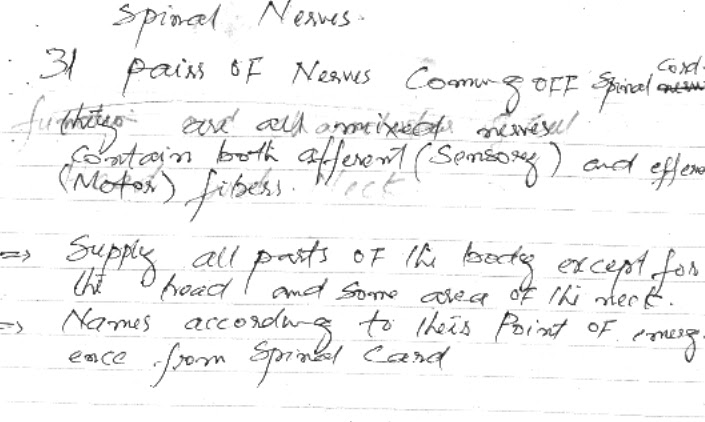 Spinal Nerves.
31 pairs OF Nerves Coming OFF Spinal Cord.
are all mixed nerves
Contain both afferent (Sensory) and effere
(Motor) fibers.
⇒ Supply all parts OF the body except for
the head and Some area OF the neck.
⇒ Names according to their Point OF emerg
ence from Spinal Cord